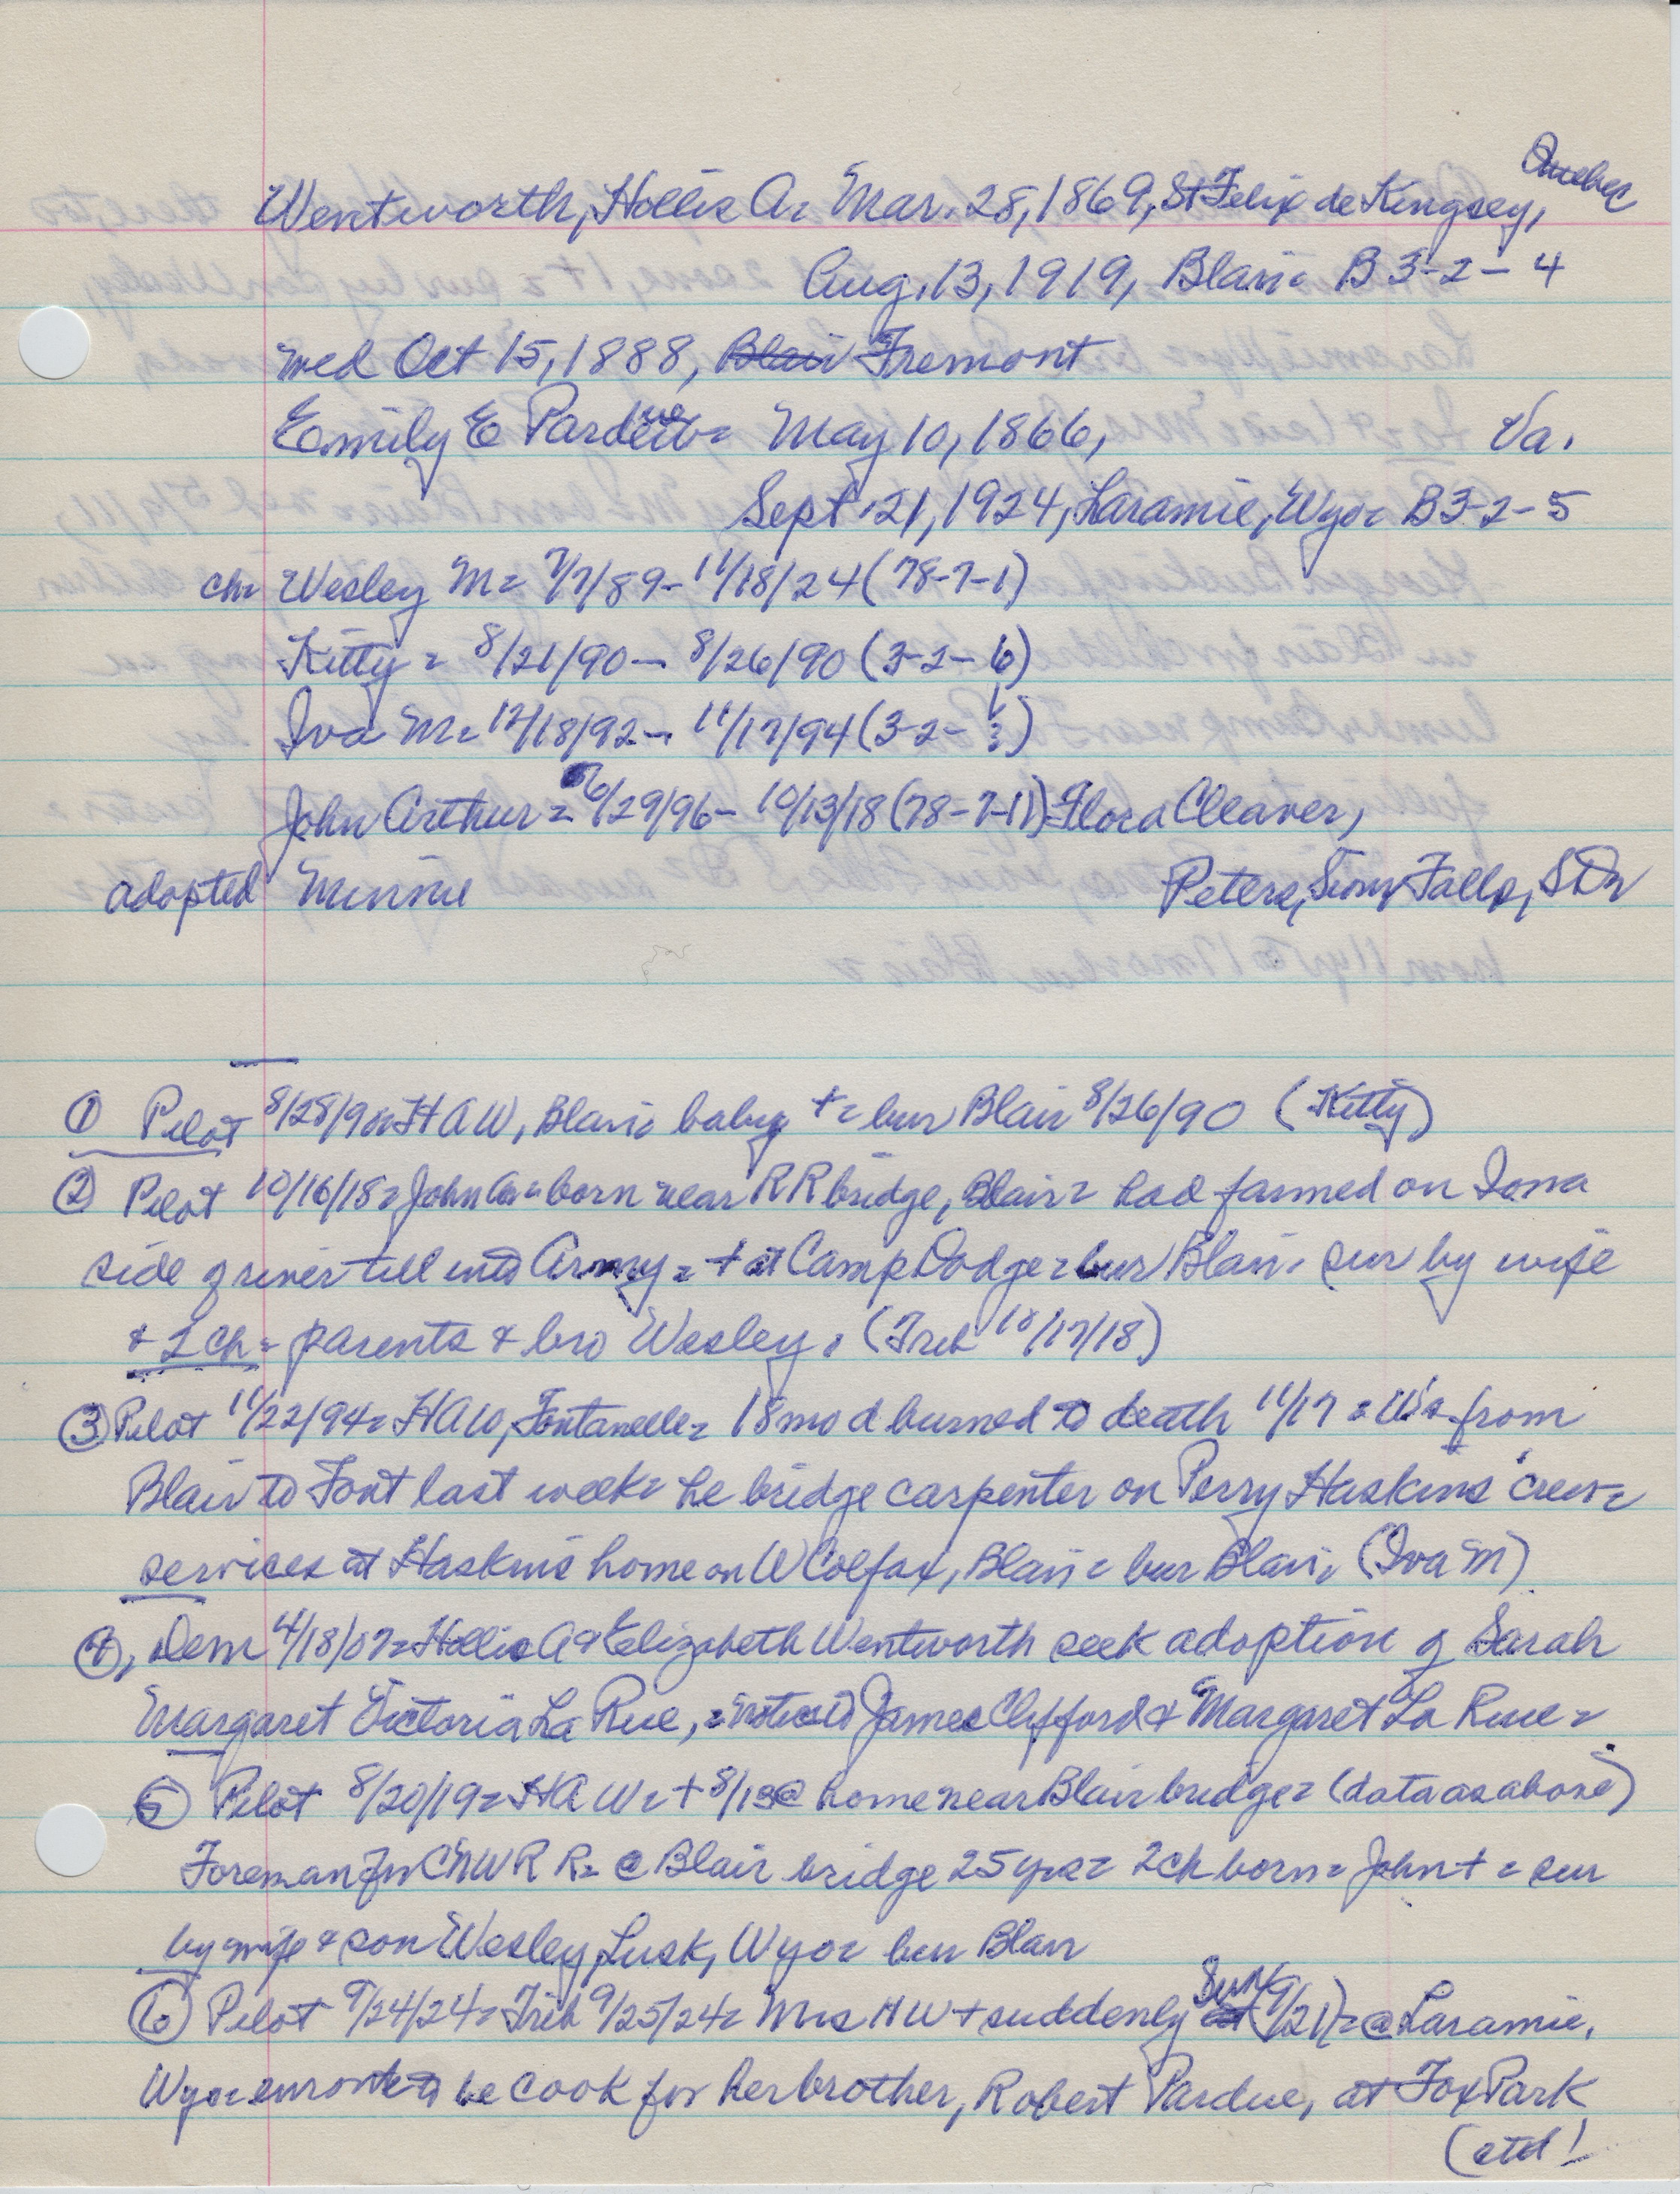 Quebec
Wentworth, Hollis A = Mar. 28, 1869, St Felix de Kingsey,
Aug. 13, 1919, Blair = B 3-2-4
med Oct 15, 1888, Blair Fremont
Emily E Pardue = May 10, 1866, Va.
Sept. 21, 1924, Laramie, Wyo = B3-2-5
ch = Wesley M = 7/7/89 - 11/18/24 (78-7-1)
Kitty = 8/21/90 - 8/26/90 (3-2-6)
Iva M = 12/18/92 - 11/17/94 (3-2-
John Arthur = 6/29/96 - 10/13/18 (78-7-11) = Flora Cleaver,
adopted Minnie Peters, Sioux Falls, SD
① Pilot 8/28/90 = HAW, Blair = baby + = bur Blair 8/26/90 (Kitty)
② Pilot 10/16/18 = John A = born near RR bridge, Blair = had farmed on Iowa
side of river till into Army = + at Camp Dodge = bur Blair = sur by wife
& 2 ch = parents & bro Wesley. (Trib 10/17/18)
③ Pilot 11/22/94 = HAW, Fontanelle = 18 mo d burned to death 11/17 = W's from
Blair to Font last week = he bridge carpenter on Perry Haskins' crew =
services at Haskins home on W Colfax, Blair = bur Blair = (Iva M)
④, Dem 4/18/07 = Hollis A & Elizabeth Wentworth seek adoption of Sarah
Margaret Victoria La Rue, = notice to James Clifford & Margaret La Rue =
⑤ Pilot 8/20/19 = HAW = + 8/13 @ home near Blair bridge = (data as above)
Foreman for CNW RR = @ Blair bridge 25 yrs = 2 ch born = John + = sur
by wife & son Wesley, Lusk, Wyo = bur Blair
⑥ Pilot 9/24/24 = Trib 9/25/24 = Mrs HW + suddenly Sun (9/21) = @ Laramie,
Wyo = enroute to be cook for her brother, Robert Pardue, at Fox Park
(ctd!